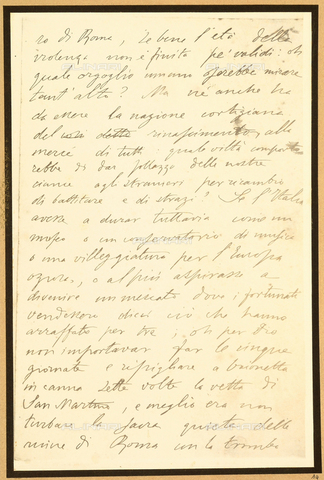 ro di Roma, se bene l'età della
violenza non è finita pe' validi: oh
quale orgoglio umano oserebbe mirare
tant'alto? Ma né anche ha
da essere la nazione cortigiana
del così detto rinascimento, alla
mercé di tutti: quale viltà comporte
rebbe di dar sollazzo delle nostre
ciance agli stranieri per ricambio
di battiture e di strazi! Se l'Italia
avesse a durar tuttavia come un
museo o un conservatorio di musica
o una villeggiatura per l'Europa
oziosa, o al più aspirasse a
divenire un mercato dove i fortunati
vendessero dieci ciò che hanno
arraffato per tre; oh per Dio
non importava far le cinque
giornate e ripigliare a baionetta
in canna sette volte la vetta di
San Martino, e meglio era non
turbare la sacra quiete delle
ruine di Roma con la tromba